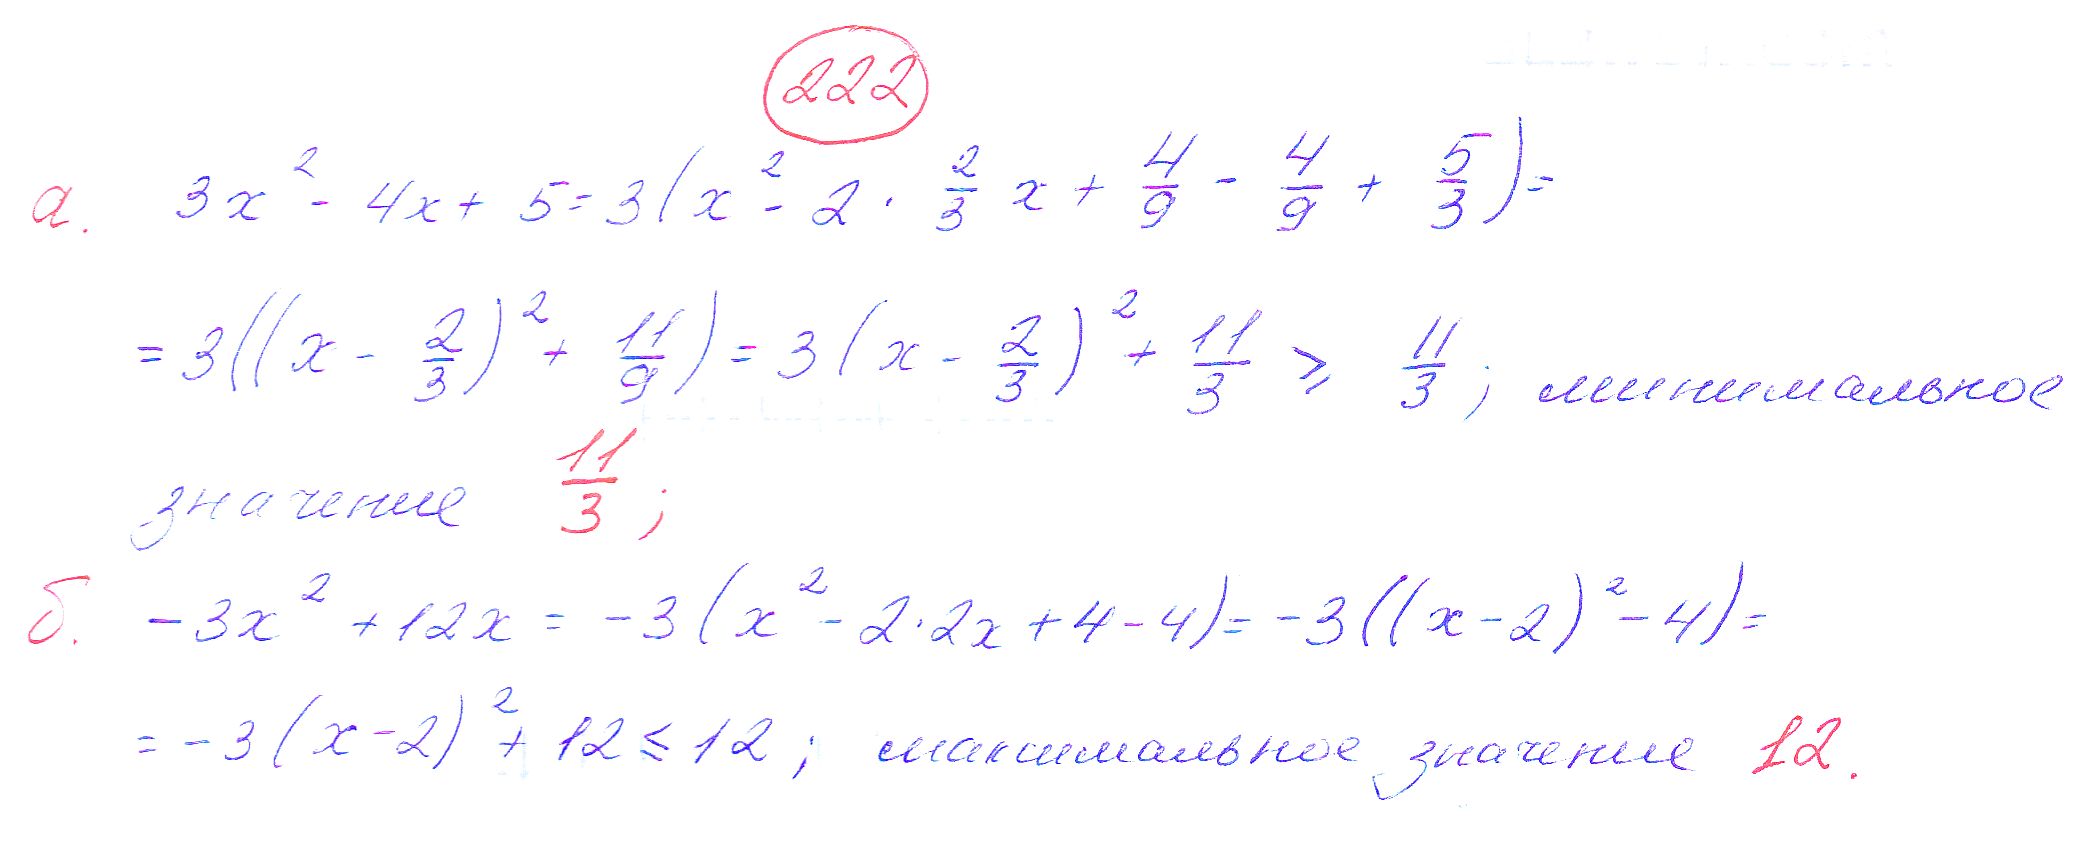 222
а. 3x² - 4x + 5 = 3(x² - 2 · 2/3 x + 4/9 - 4/9 + 5/3) =
= 3((x - 2/3)² + 11/9) = 3(x - 2/3)² + 11/3 ⩾ 11/3; минимальное
значение 11/3;
б. -3x² + 12x = -3(x² - 2·2x + 4 - 4) = -3((x - 2)² - 4) =
= -3(x - 2)² + 12 ⩽ 12; максимальное значение 12.